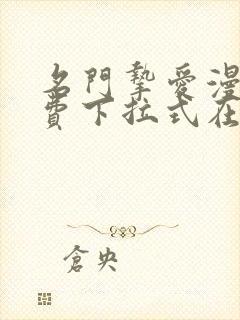 名門摯愛漫
費下拉式在
倉央